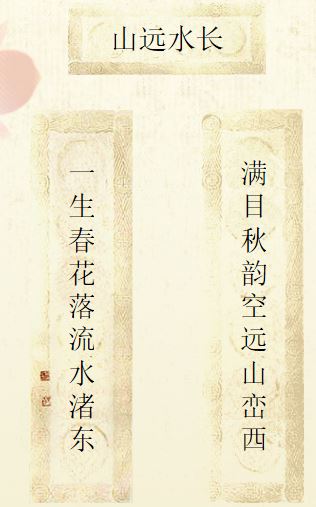 山远水长
满目秋韵空远山峦西
一生春花落流水渚东